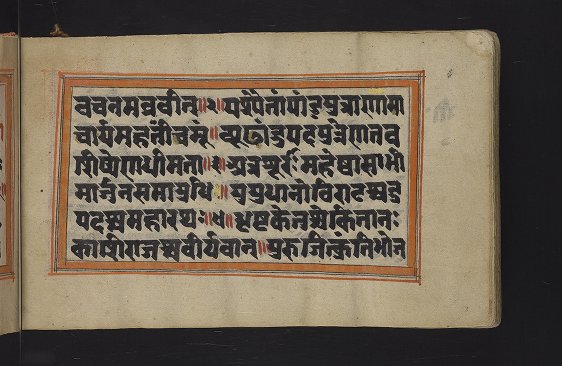 वचनमब्रवीत्॥२॥पश्यैतांपांडुपुत्राणामा
चार्यमहतींचमूं॥व्यूढांद्रुपदपुत्रेणतव
शिष्येणधीमता॥३॥अत्रशूरामहेष्वासाभी
मार्जुनसमायुधि॥युयुधानोविराटश्चद्रु
पदश्चमहारथः॥४॥धृष्टकेतुश्चेकितानः
काशीराजश्चवीर्यवान्॥पुरुजित्कुन्तिभोज